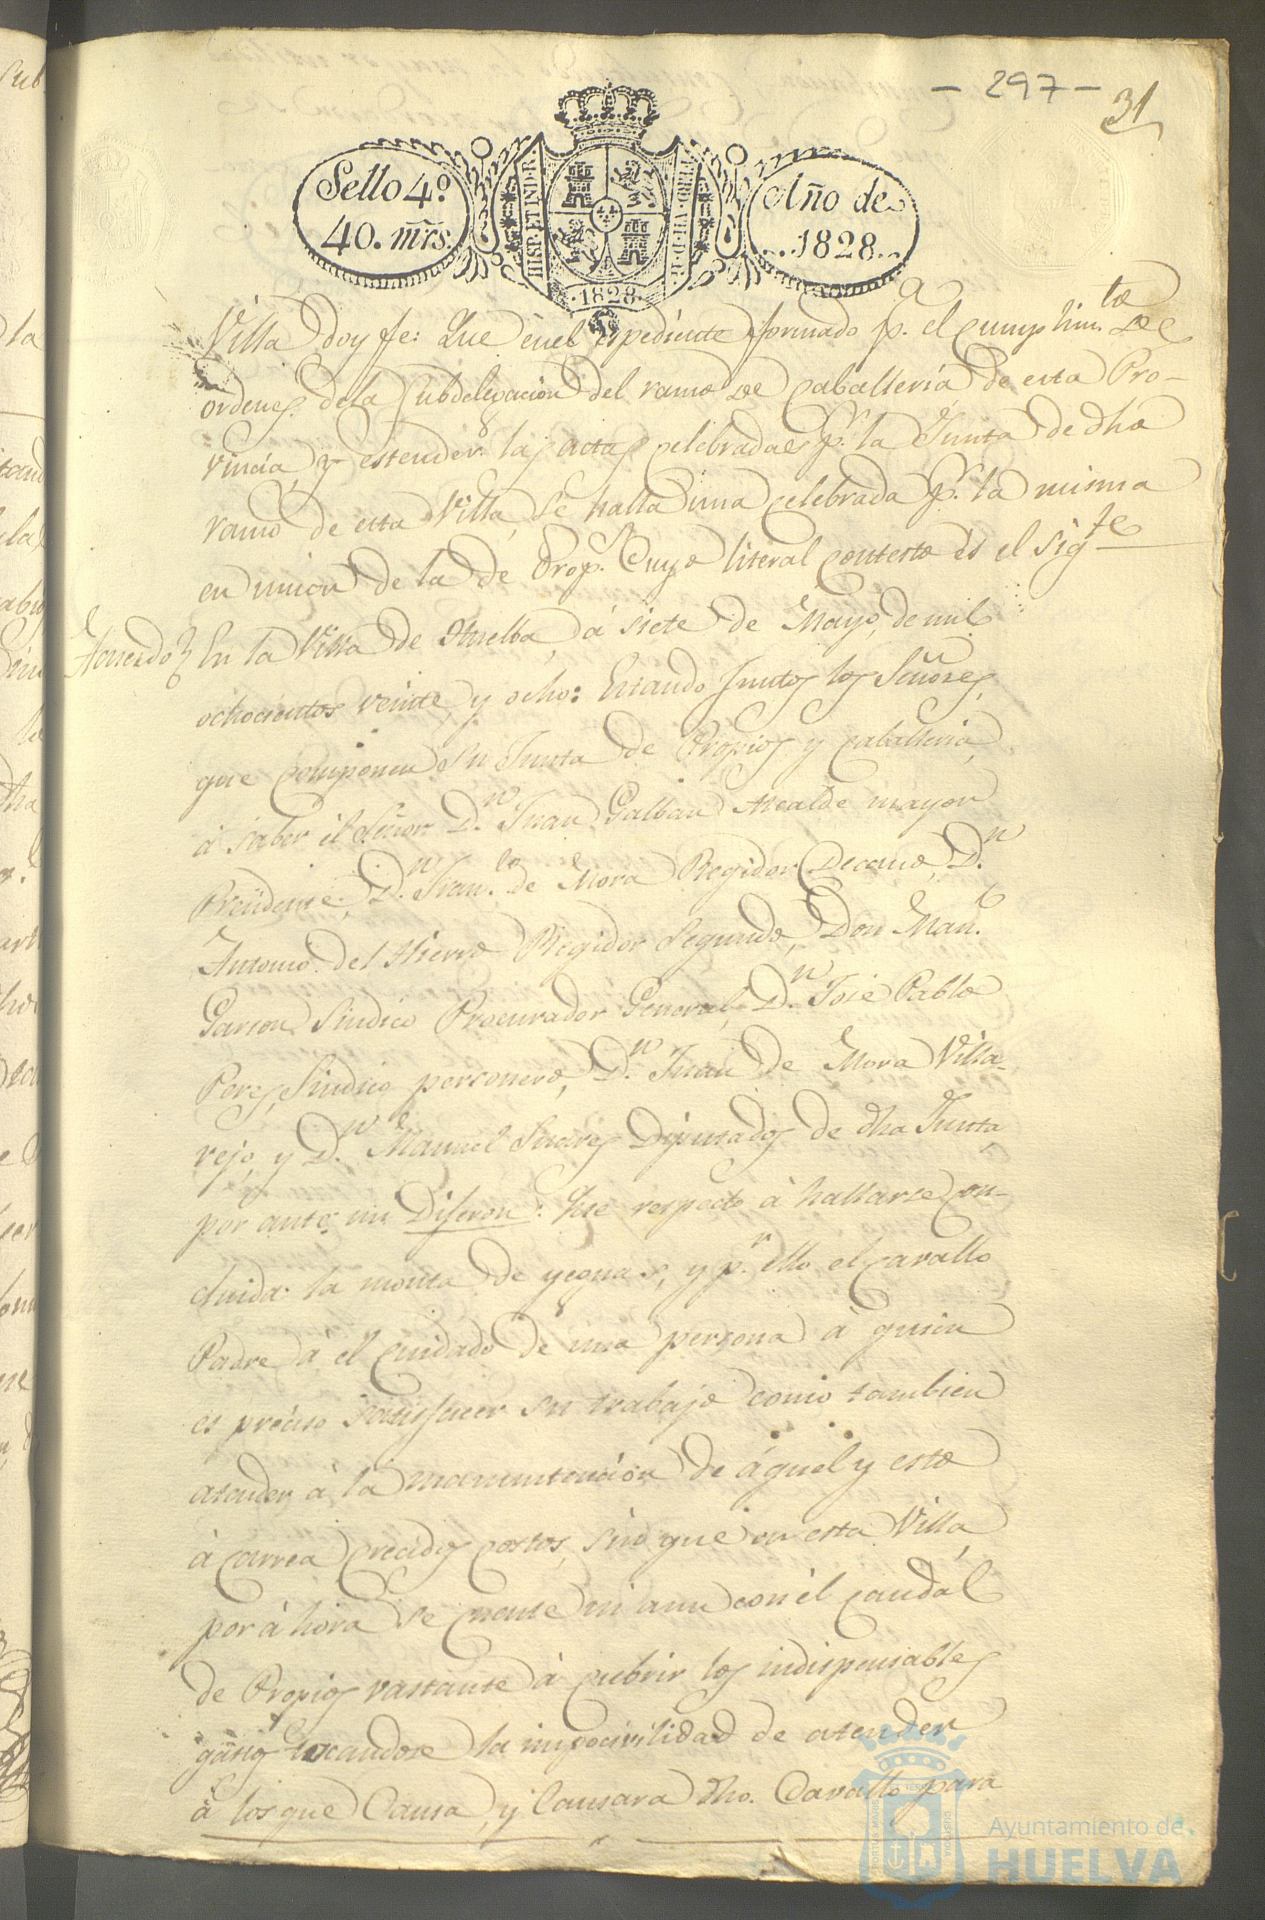 - 297 -
31
Sello 4.º
40. mrs.
HISP. ET IND. R.
FERD. VII. D. G.
Año de
1828.
1828.
Villa doy fe: Que en el espediente formado p.ª el cumplim.to de
ordenes de la Subdelegacion del ramo de caballeria de esta Pro-
vincia, y estender las actas celebradas p.r la Junta de dho
ramo de esta Villa, se halla una celebrada p.r la misma
en union de la de Prop.s cuyo literal contesto es el sig.te
Acuerdo En la Villa de Huelba, á siete de Mayo, de mil
ochocientos veinte, y ocho: Estando Juntos los Señores,
que componen su Junta de Propios y caballeria,
á saber el Señor D.n Juan Galban Alcalde mayor
Presidente, D.n Fran.co de Mora Regidor Decano, D.n
Antonio del Hierro Regidor Segundo, Don Man.l
Garson Sindico Procurador General, D.n José Pablo
Peres, Sindico personero, D.n Juan de Mora Villa-
rejo, y D.n Manuel Suares Diputados de dha Junta,
por ante mi Dijeron: Que respecto á hallarse con-
cluida la monta de yeguas, y p.r ello el cavallo
Padre á el cuidado de una persona á quien
es preciso satisfacer su trabajo como tambien
atender á la manutencion de áquel y esto
á carrea crecidos costos, sin que en esta Villa,
por áhora se cuente ni aun con él caudál
de Propios vastante á cubrir los indispensables
gastos tocandose la imposivilidad de atender
á los que Causa, y Causara dho. Cavallo para
Ayuntamiento de
HUELVA